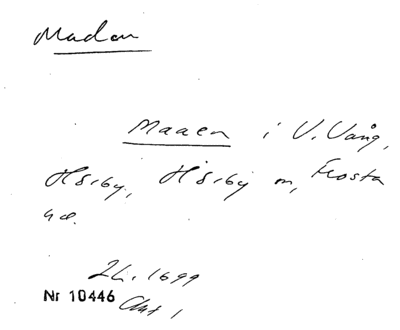 Madan
Maaen i V. Vång,
Hörby, Hörby m, Frosta
hd.
LL. 1699
Nr 10446 Akt 1